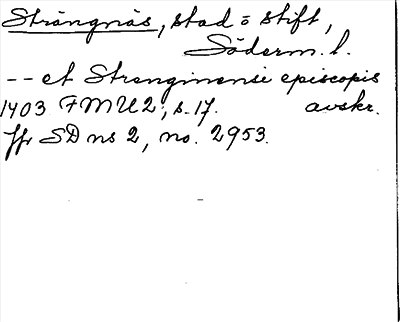 Strängnäs, stad o stift,
Söderm. l.
-- et Strenginensi episcopis
1403 FMU 2, s. 17. avskr.
Jfr SD ns 2, no. 2953.